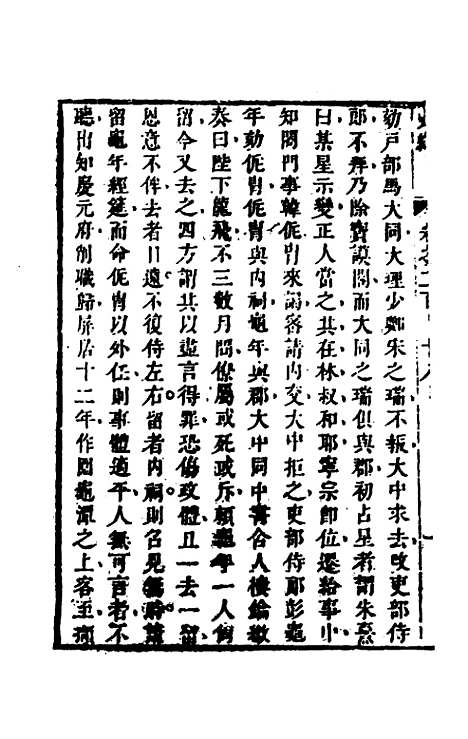 劾戶部馬大同大理少鄭朱之瑞不報大中求去改吏部侍
郎不拜乃除寶謨閣而大同之瑞俱與郡初占星者謂朱熹
曰某星示變正人當之其在林叔和耶寧宗即位遷給事中
知閤門事韓侂胄來謁客請內交大中拒之吏部侍郎彭龜
年劾侂胄侂胄與內祠龜年與郡大中同中書舍人樓鑰繳
奏曰陛下龍飛不三數月間僚屬或死或斥賴龜年一人尙
留今又去之四方謂其以盡言得罪恐傷政體且一去一留
恩意不侔去者日遠不復侍左右留者內祠則召見無時請
留龜年經筵而命侂胄以外任則事體適平人無可言者不
聽出知慶元府削職歸屏居十二年作園龜潭之上客至